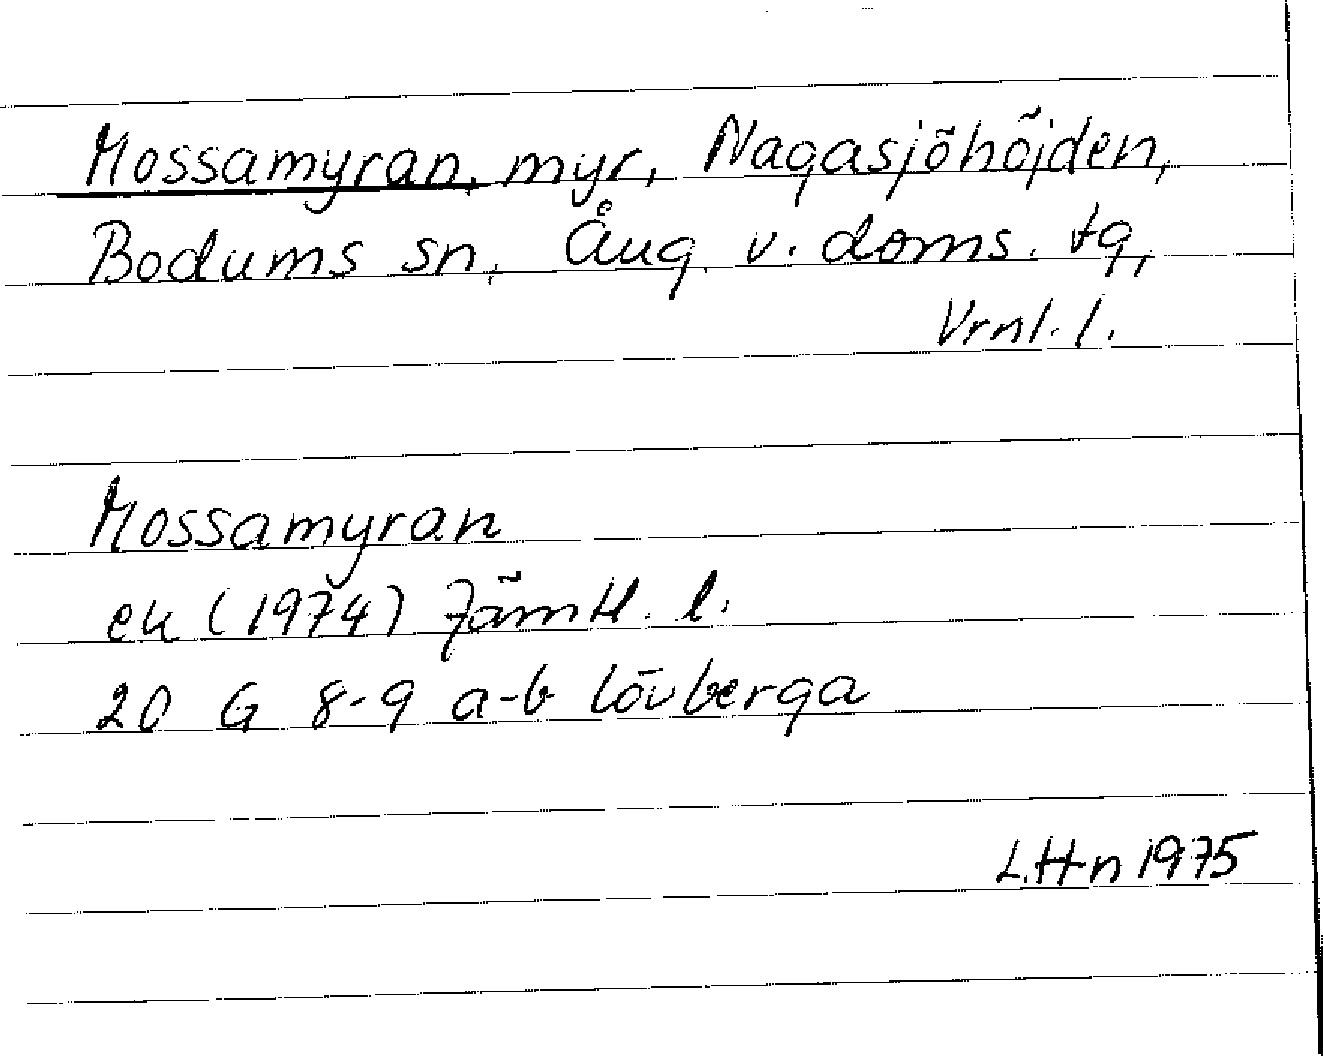 Mossamyran, myr, Nagasjöhöjden,
Bodums sn, Ång. v. doms. tg,
Vrnl. l.
Mossamyran
ek (1974) Jämtl. l.
20 G 8-9 a-b Lövberga
L.Hn 1975